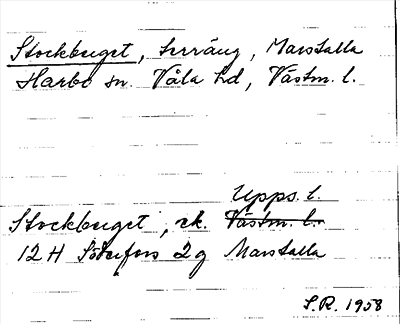 Stockbuget, terräng, Marstalla
Harbo sn Våla hd, Västm. l.
Upps. l.
Stockbuget, ek. Västm. l.
12 H Söderfors 2 g Marstalla
S.R. 1958